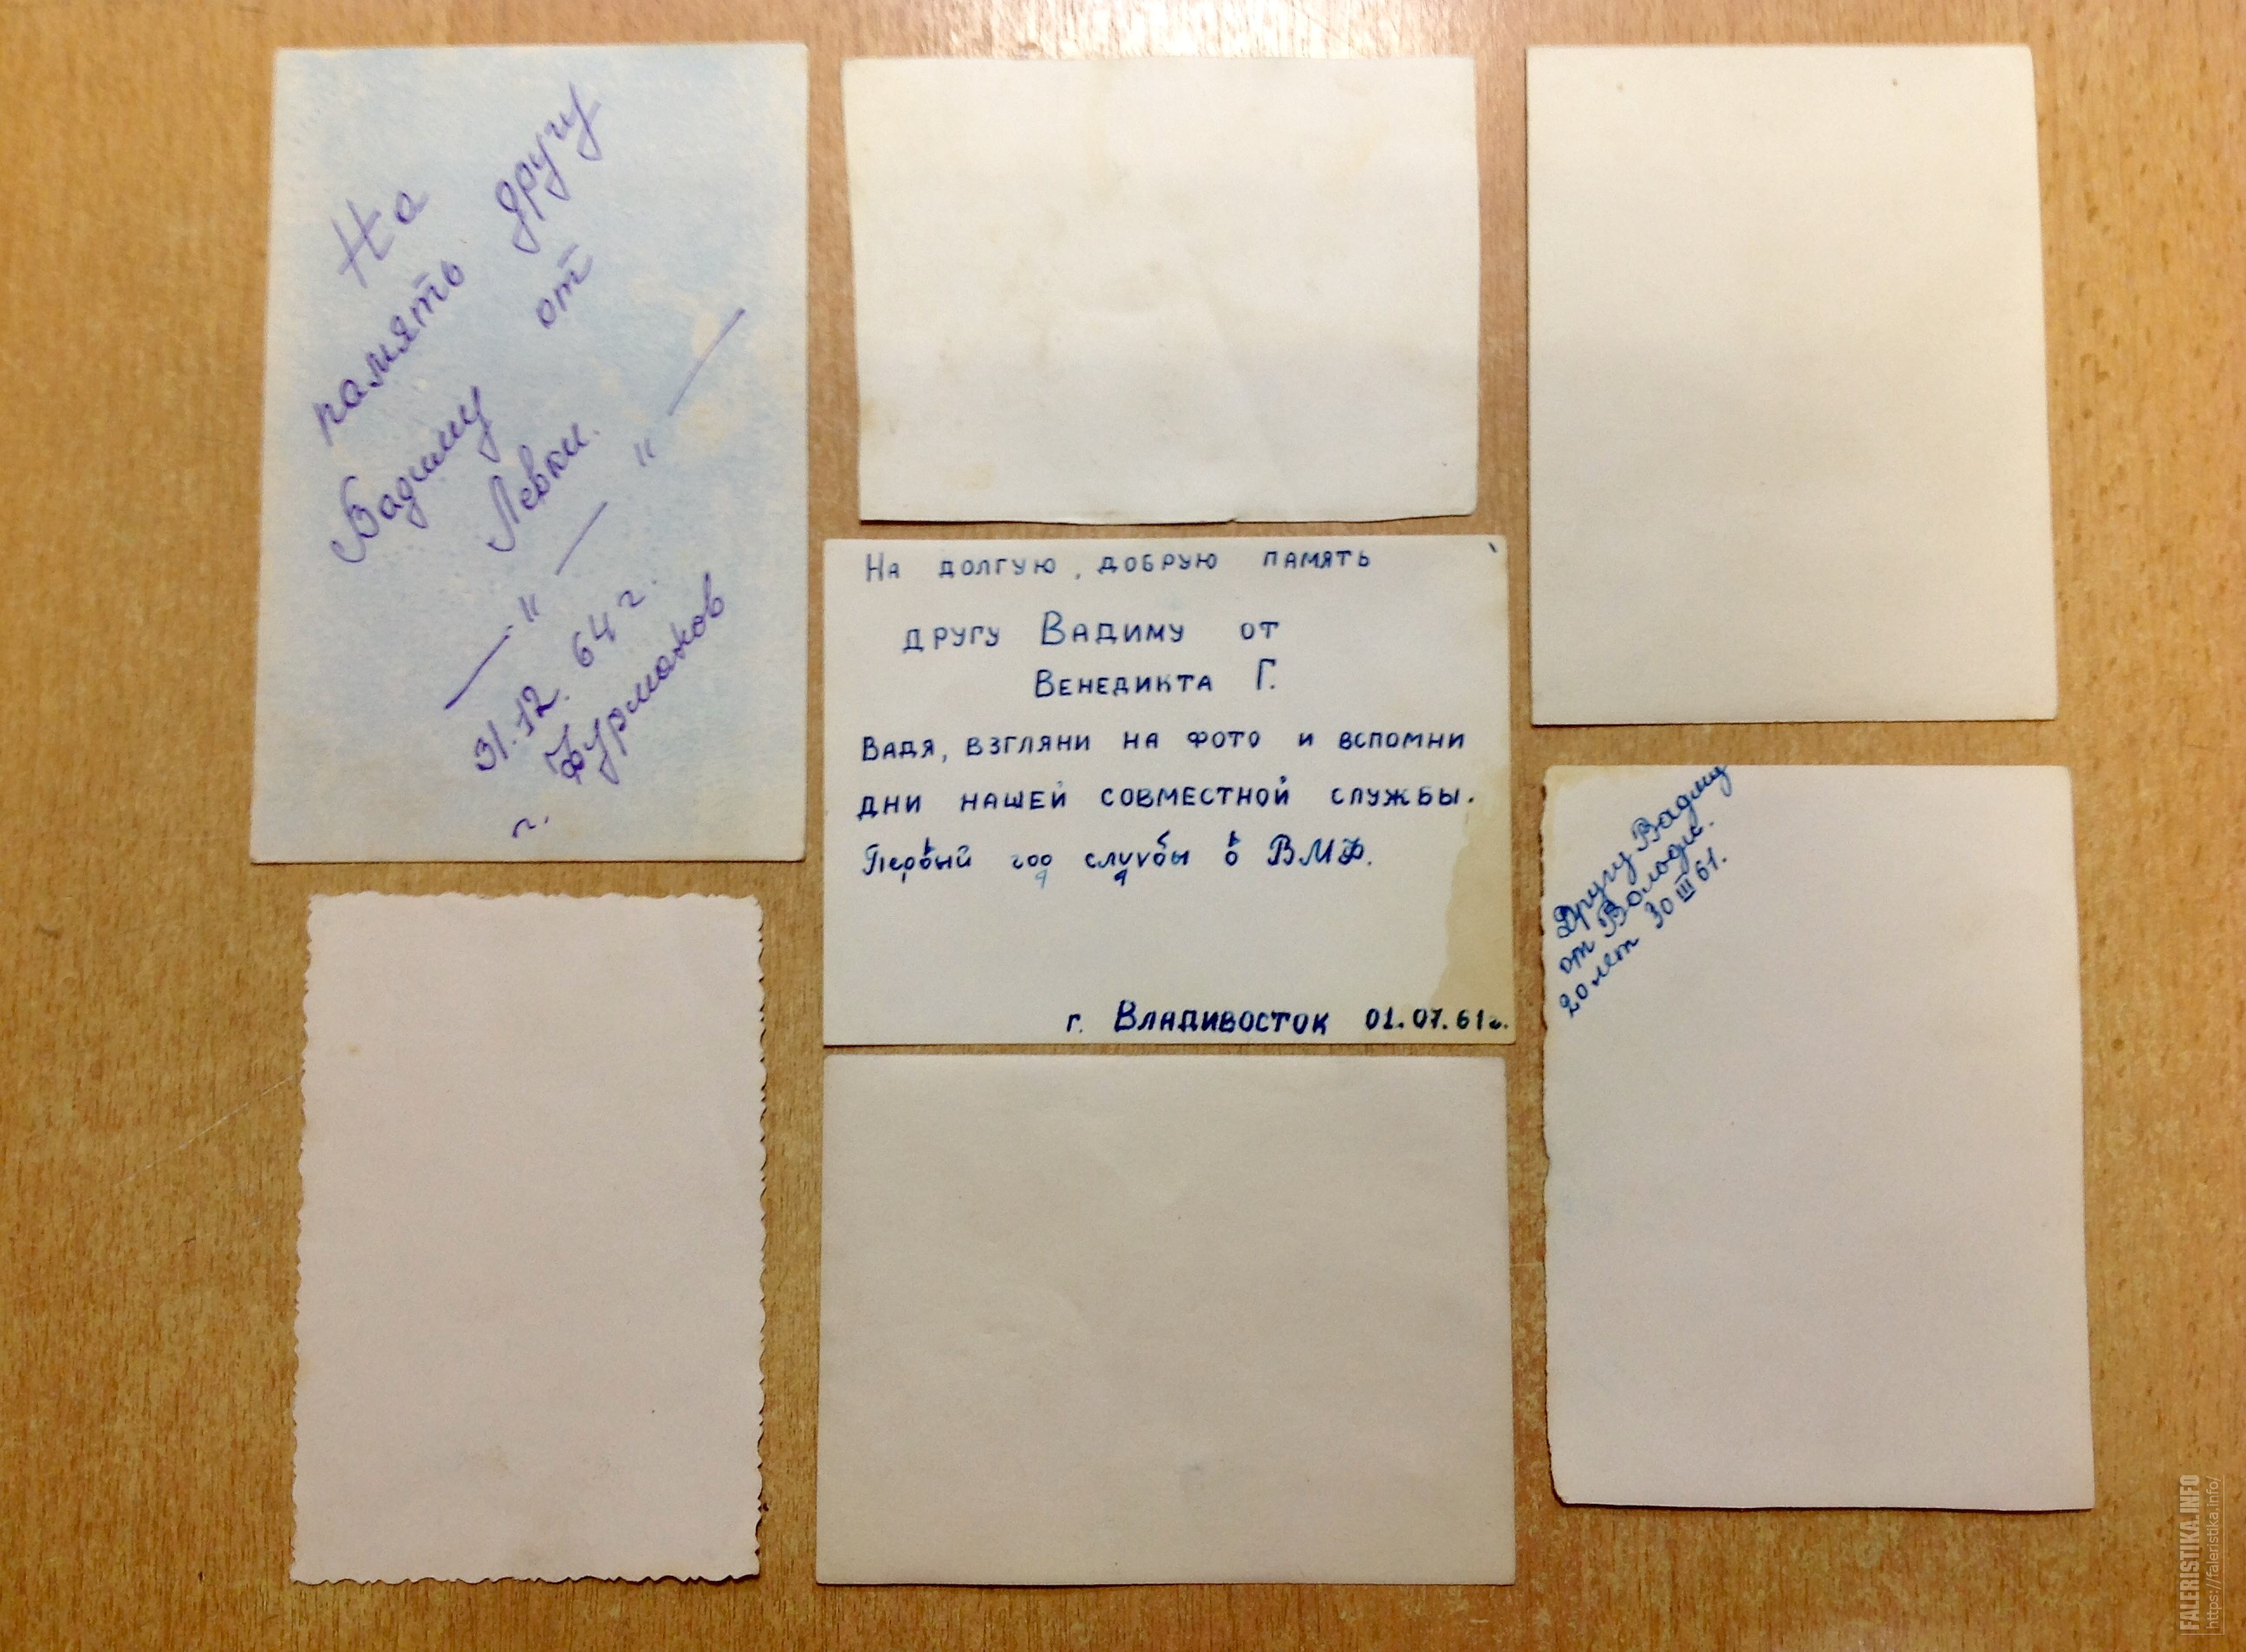 На
память другу
Вадиму от
Левки.
— " — " —
31.12.64 г.
г. Фурманов
На долгую, добрую память
другу Вадиму от
Венедикта Г.
Вадя, взгляни на фото и вспомни
дни нашей совместной службы.
Первый год службы в ВМФ.
г. Владивосток 01.07.61г.
Другу Вадиму
от Володи.
20 лет 30 III 61.
FALERISTIKA.INFO
https://faleristika.info/